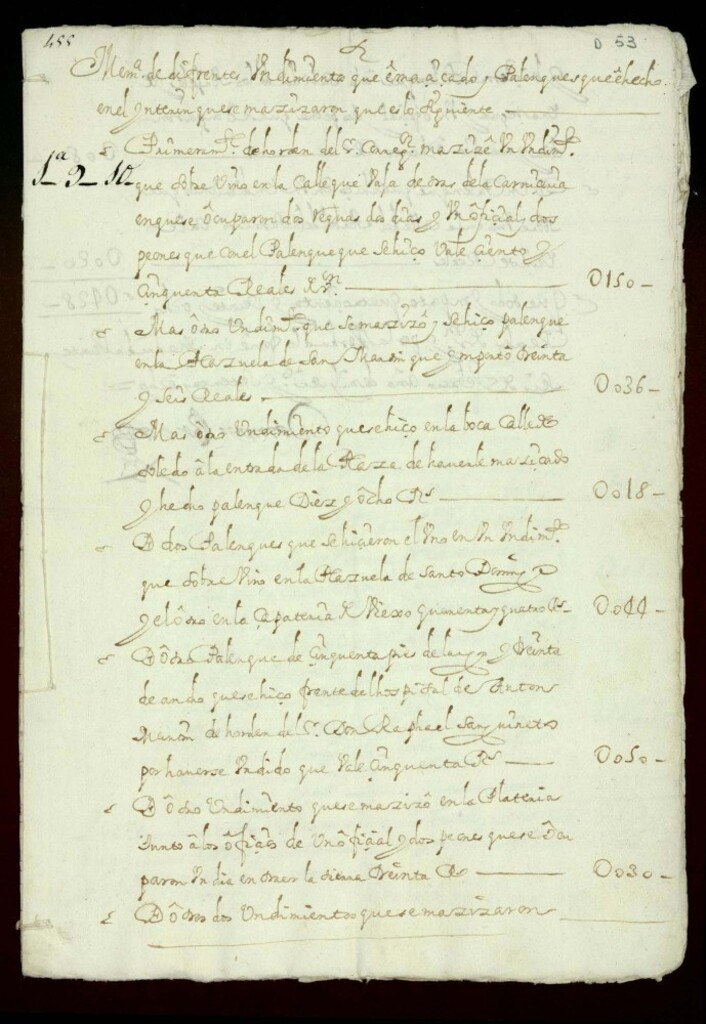 455
D 53
Mem.ª de difrentes Vndimientos que e maçiçado y Palenques que e hecho
en el ynterin que se mazizaron que es lo siguiente
1ª 9 - 10
Primeram.te de horden del s.r Correg.r mazize Vn Vndim.to
que sobre Vino en la Calle que Vaja de tras de la Carniçeria
en que se ôcuparon dos Yeguas dos dias y Vn ôfiçial dos
peones que con el Palenque que se hiço Vale Çiento y
Çinquenta Reales Vn 0150
Mas ôtro Vndim.to que se mazizô y se hiço palenque
en la Plazuela de San Martin que ymportô treinta
y seis Reales 0036
Mas ôtro Vndimiento que se hiço en la boca Calle de
toledo â la entrada de la Plaza de hauerle maziçado
y hecho palenque Diez y ôcho Rs 0018
D dos Palenques que se hiçieron el Vno en Vn Vndim.to
que sobre Vino en la Plazuela de Santo Domingo
y el ôtro en la Çapateria de Viexo quarenta y quatro Rs 0044
D ôtro Palenque de Çinquenta pies de largo y treinta
de ancho que se hiço frente del hospital de Anton
Martin de horden del s.r Don Raphael Sanguineto
por hauerse Vndido que Vale Çinquenta Rs 0050
D ôtro Vndimiento que se mazizô en la Plateria
Junto â los de Vn ôfiçial y dos peones que se ôcu
paron Vn dia en traer la tierra treinta Rs 0030
D ôtros dos Vndimientos que se mazizaron